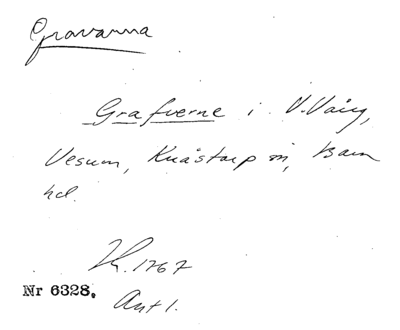 Gravarna
Grafverne i V. Vång,
Vesum, Knästorp sn, Bara
hd.
Jb. 1767
Nr 6328.
Ant 1.